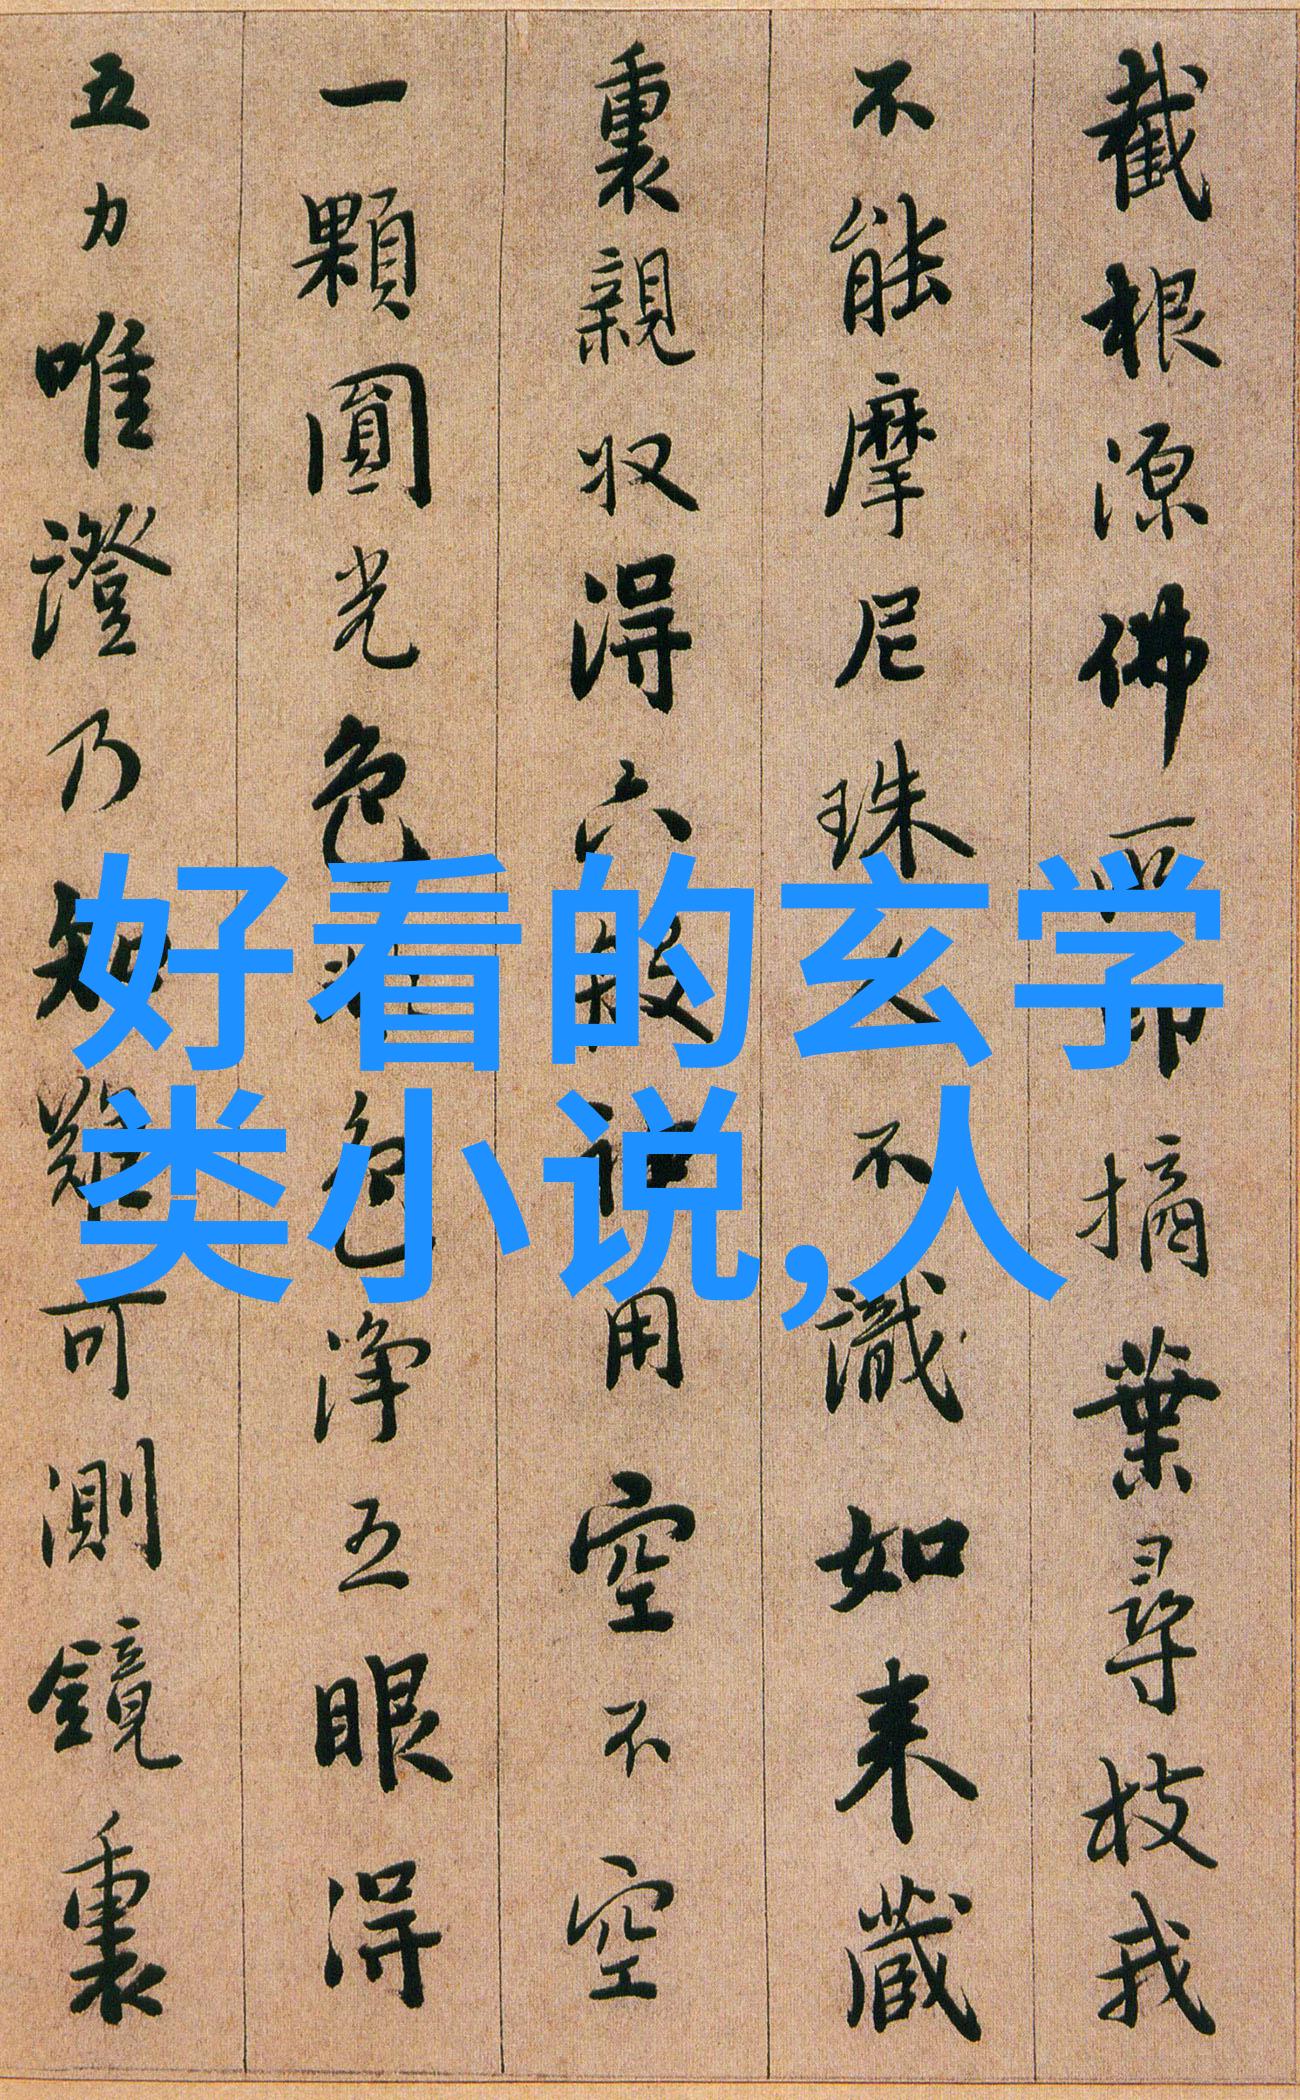 截根源佛所印摘葉尋枝我
不能摩尼珠人不識如来藏
裏親収得六般神用空不空
一顆圓光色非色净五眼得
五力唯證乃知難可測鏡裏
好看的玄学
类小说,人